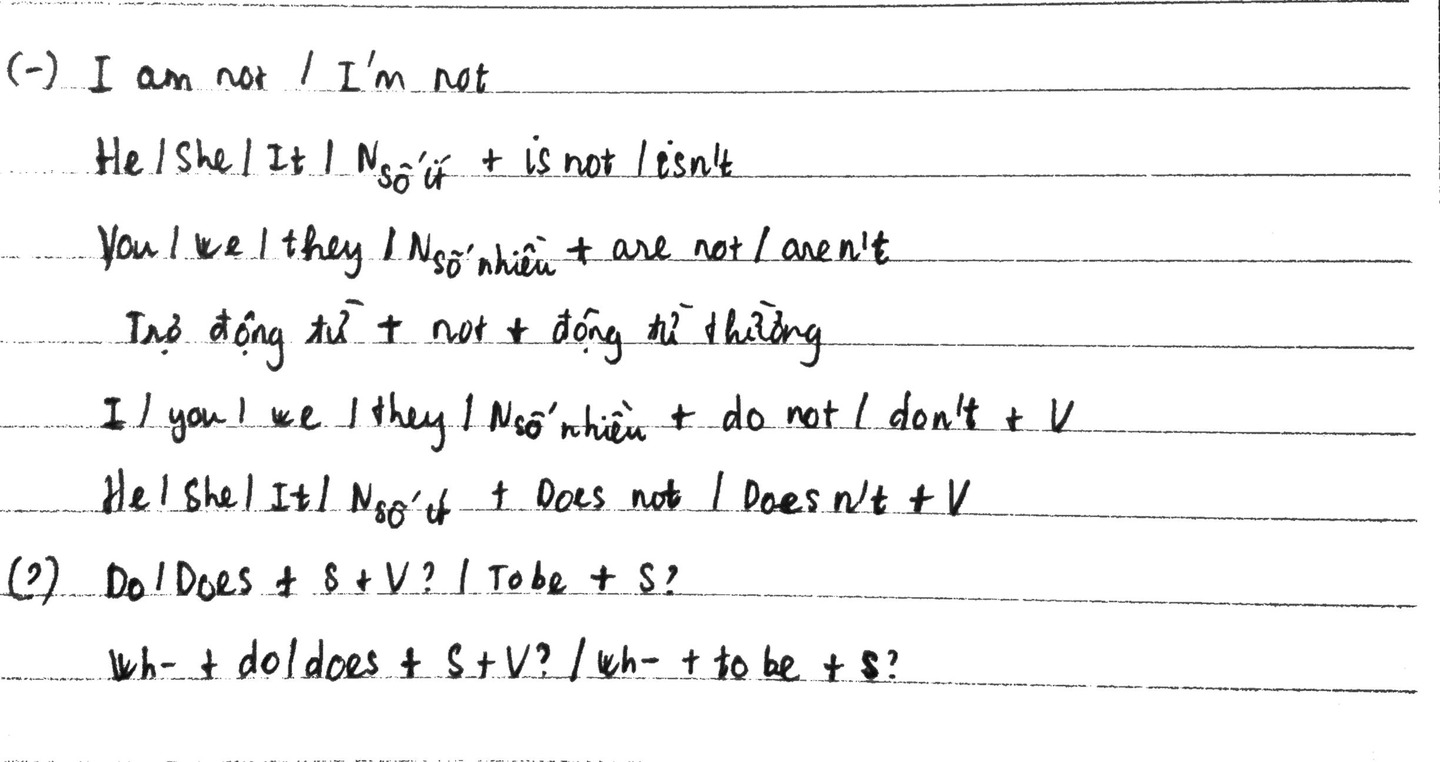 (-) I am not / I'm not
He / She / It / N số ít + is not / isn't
You / we / they / N số nhiều + are not / aren't
Trợ động từ + not + động từ thường
I / you / we / they / N số nhiều + do not / don't + V
He / She / It / N số ít + Does not / Doesn't + V
(?) Do / Does + S + V? / To be + S?
Wh- + do / does + S + V? / Wh- + to be + S?